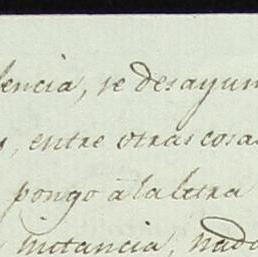 lencia, se desayun
, entre otras cosa
pongo á la letra
instancia, nada